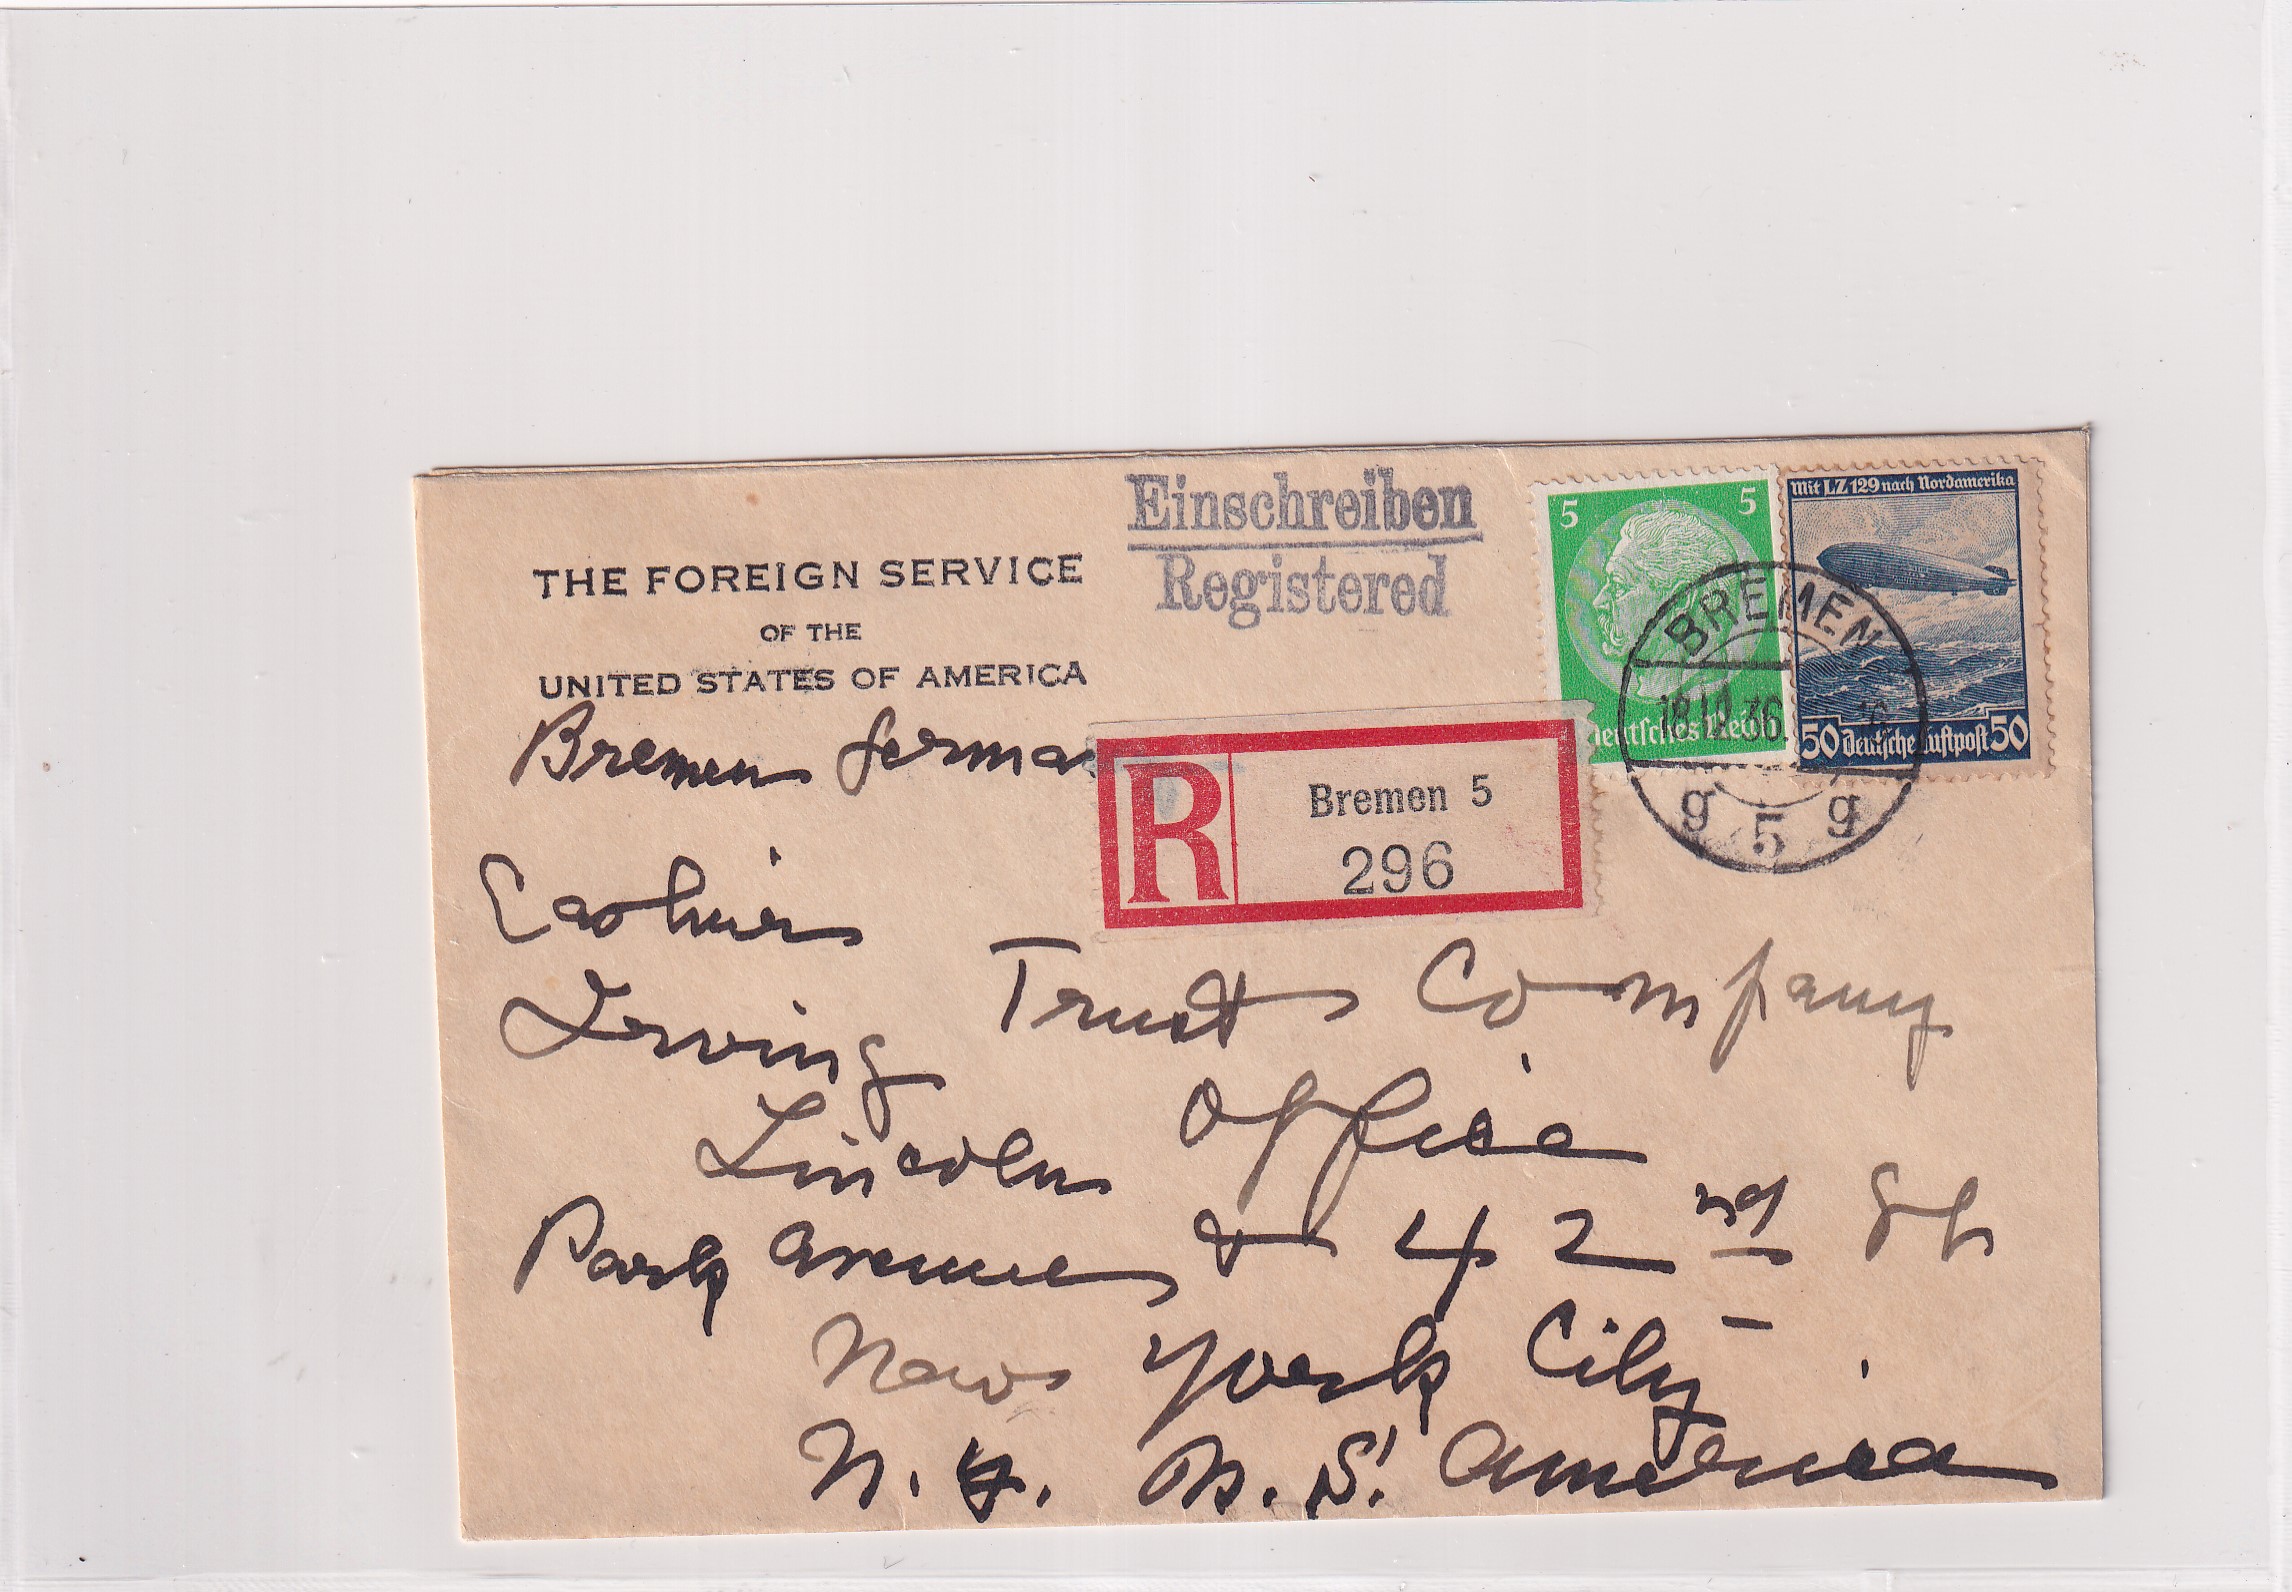 Einschreiben
Registered
THE FOREIGN SERVICE
OF THE
UNITED STATES OF AMERICA
Bremen German
5 5
Deutsches Reich
Mit LZ 129 nach Nordamerika
50 Deutsche Luftpost 50
BREMEN
36.
g 5 g
R Bremen 5
296
Cashier
Irving Trust Company
Lincoln Office
Park Avenue & 42nd St
New York City
N.Y. U.S. America